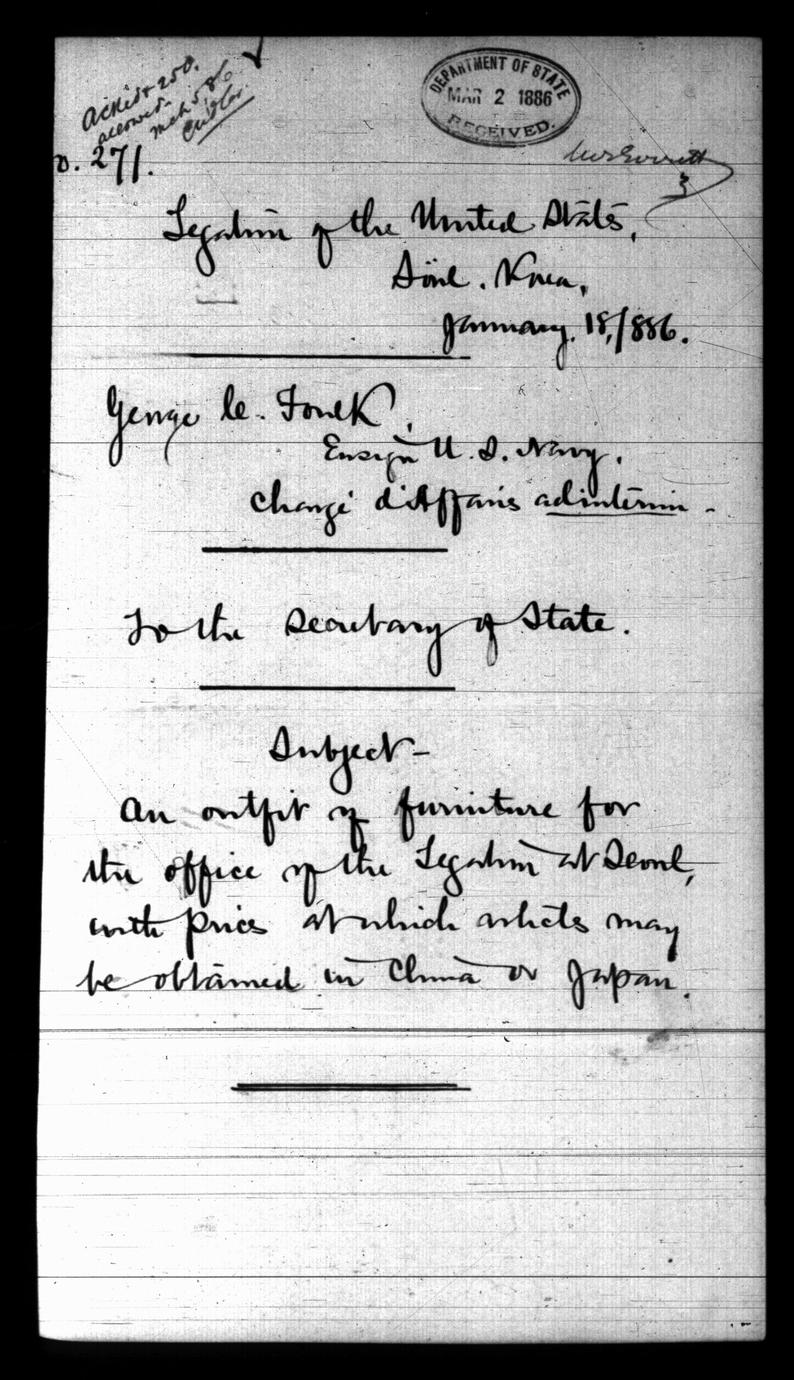 Ackd & 250.
allowed.
Mch 5, 86
DEPARTMENT OF STATE
MAR 2 1886
RECEIVED.
o. 271.
Legation of the United States,
Söul. Korea,
January. 18, 1886.
George C. Foulk,
Ensign U. S. Navy.
Chargé d'Affaires ad interim -
To the Secretary of State.
Subject -
An outfit of furniture for
the office of the Legation at Seoul,
with prices at which articles may
be obtained in China or Japan.